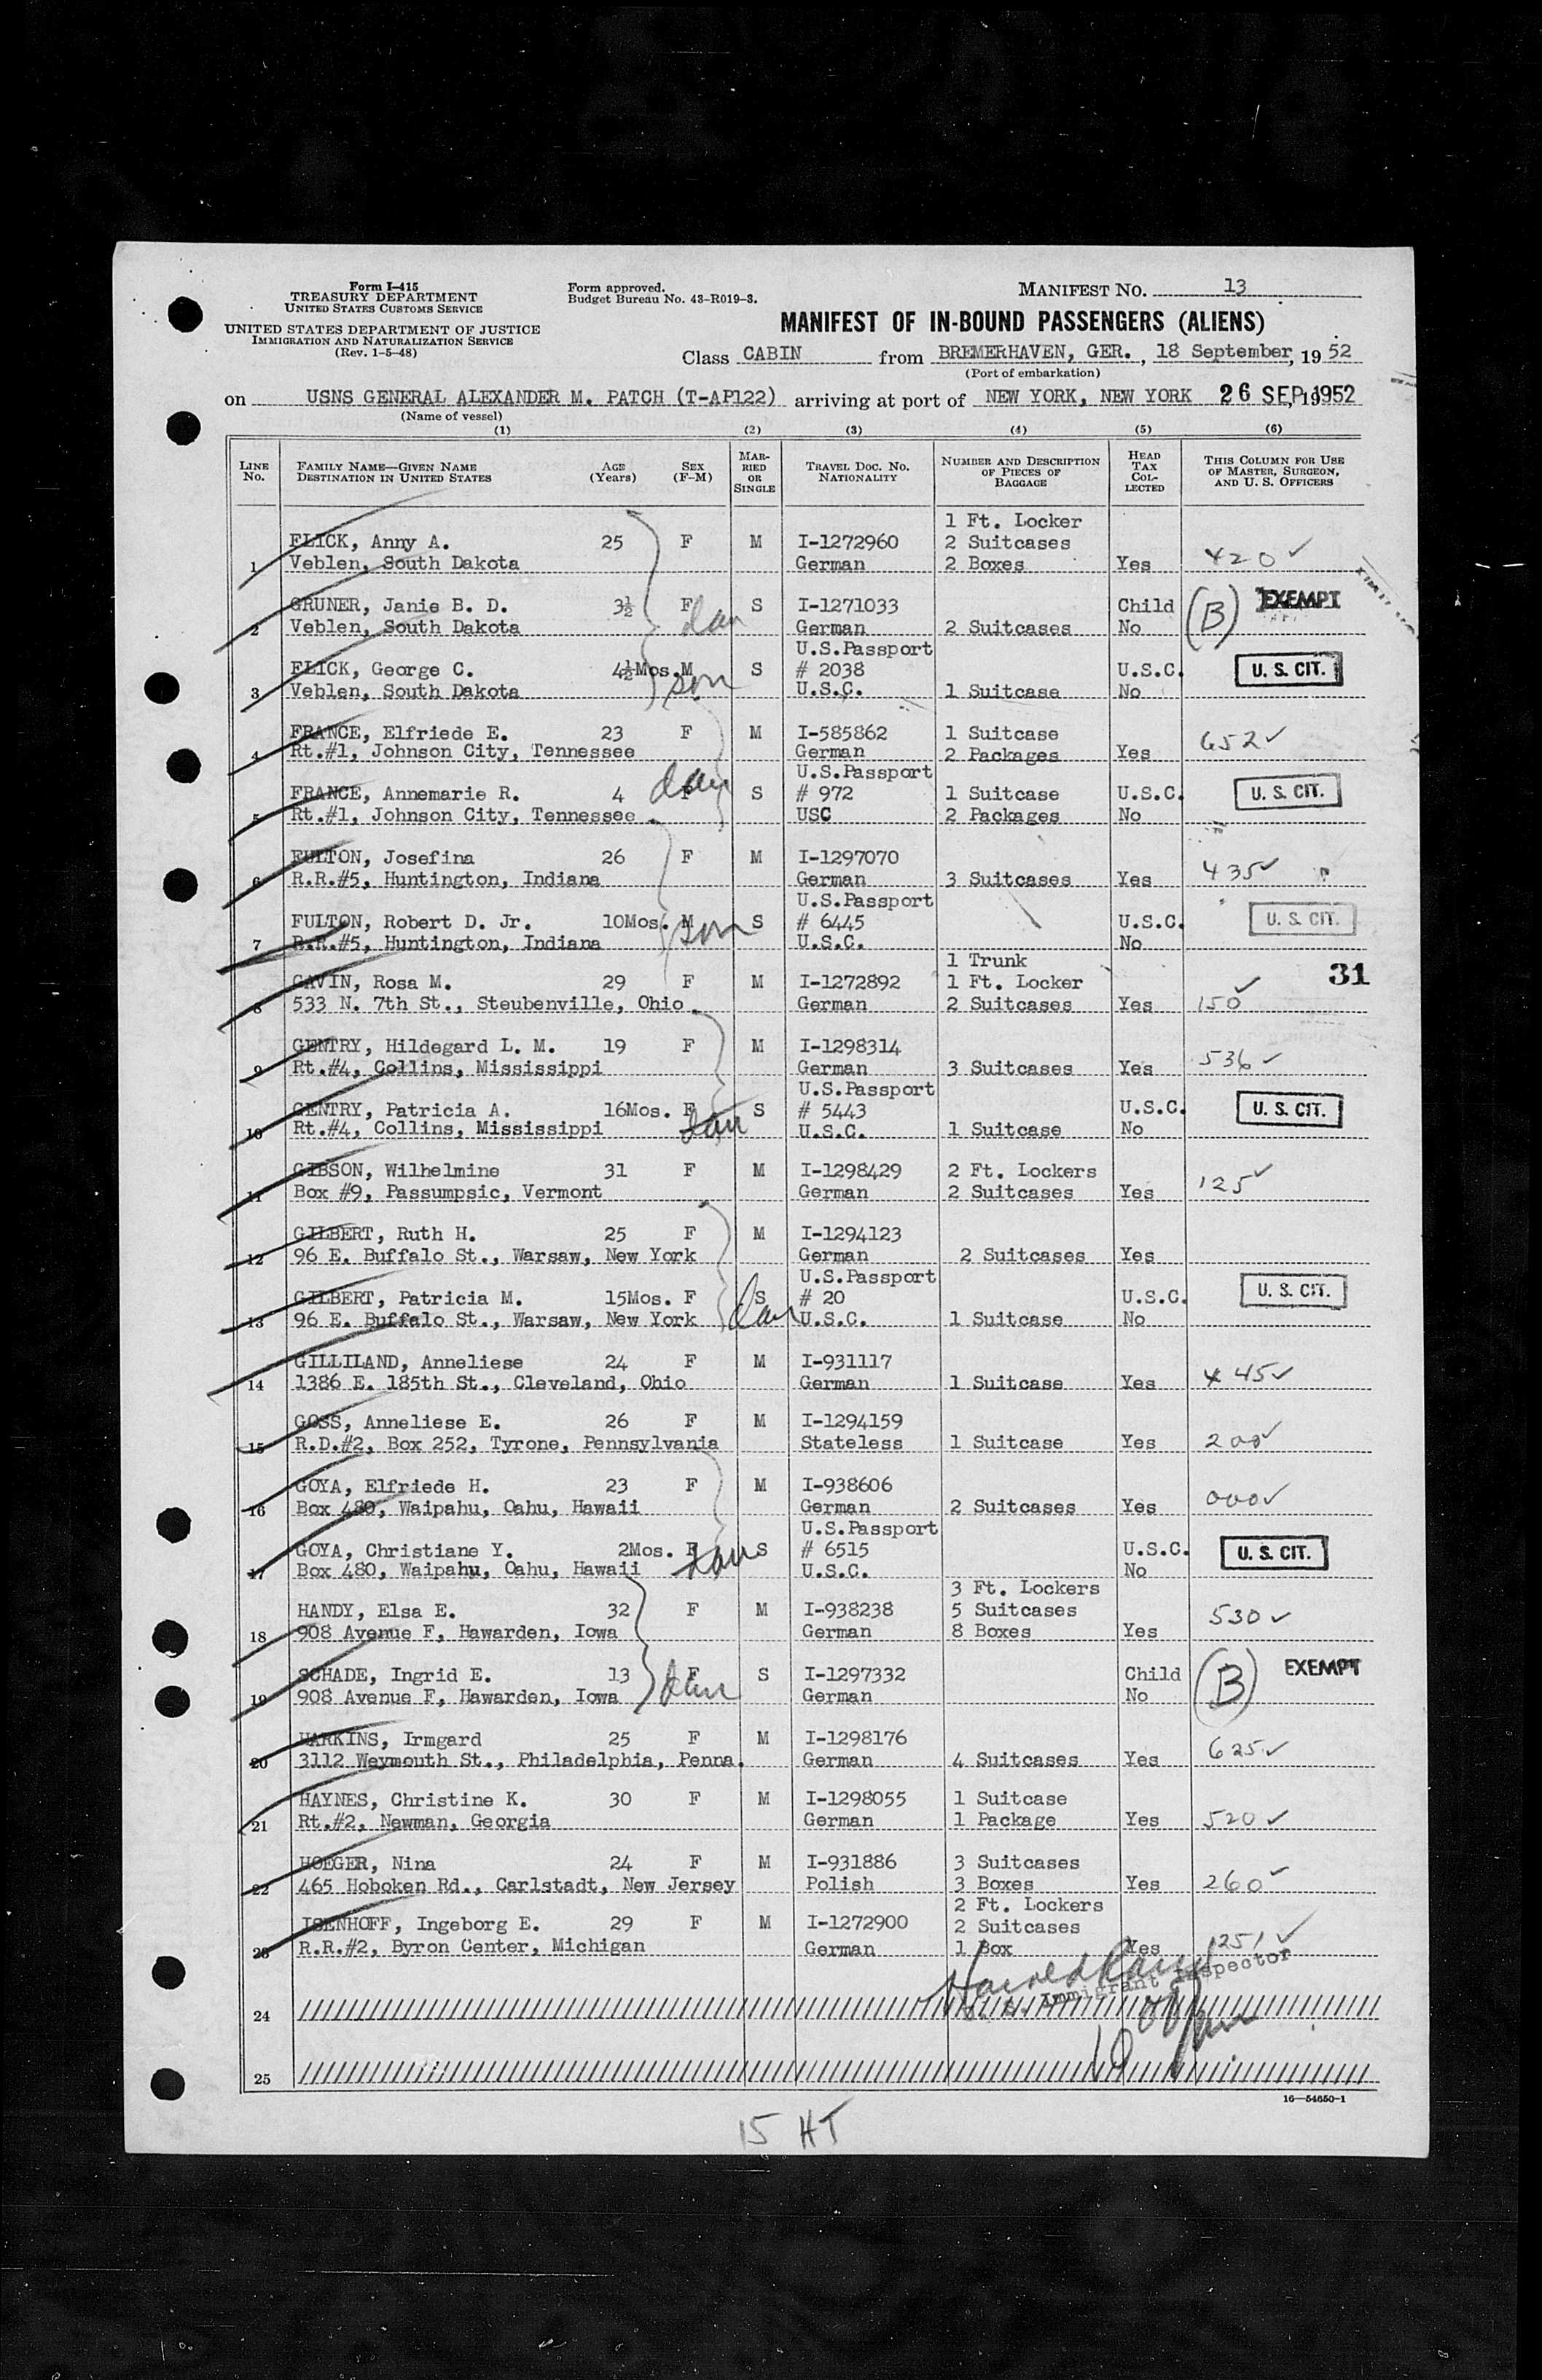 Form I-415
TREASURY DEPARTMENT
UNITED STATES CUSTOMS SERVICE
UNITED STATES DEPARTMENT OF JUSTICE
IMMIGRATION AND NATURALIZATION SERVICE
(Rev. 1-5-48)
Form approved.
Budget Bureau No. 43-R019-3.
MANIFEST NO. 13
MANIFEST OF IN-BOUND PASSENGERS (ALIENS)
Class CABIN from BREMERHAVEN, GER., 18 September, 19 52
(Port of embarkation)
on USNS GENERAL ALEXANDER M. PATCH (T-AP122) arriving at port of NEW YORK, NEW YORK 26 SEP 1952
(Name of vessel)
(1) (2) (3) (4) (5) (6)
LINE No. FAMILY NAME—GIVEN NAME DESTINATION IN UNITED STATES AGE (Years) SEX (F-M) MARRIED OR SINGLE TRAVEL DOC. NO. NATIONALITY NUMBER AND DESCRIPTION OF PIECES OF BAGGAGE HEAD TAX COLLECTED THIS COLUMN FOR USE OF MASTER, SURGEON, AND U. S. OFFICERS
1 Ft. Locker
FLICK, Anny A. 25 F M I-1272960 2 Suitcases
1 Veblen, South Dakota German 2 Boxes Yes 420 ✓
GRUNER, Janie B. D. 3½ F dau S I-1271033 Child (B) EXEMPT
2 Veblen, South Dakota German 2 Suitcases No
U.S.Passport
FLICK, George C. 4½Mos. M son S # 2038 U.S.C. U. S. CIT.
3 Veblen, South Dakota U.S.C. 1 Suitcase No
FRANCE, Elfriede E. 23 F M I-585862 1 Suitcase 652 ✓
4 Rt.#1, Johnson City, Tennessee German 2 Packages Yes
U.S.Passport
FRANCE, Annemarie R. 4 F dau S # 972 1 Suitcase U.S.C. U. S. CIT.
5 Rt.#1, Johnson City, Tennessee USC 2 Packages No
FULTON, Josefina 26 F M I-1297070 435 ✓
6 R.R.#5, Huntington, Indiana German 3 Suitcases Yes
U.S.Passport
FULTON, Robert D. Jr. 10Mos. M son S # 6445 U.S.C. U. S. CIT.
7 R.R.#5, Huntington, Indiana U.S.C. No
1 Trunk 31
GAVIN, Rosa M. 29 F M I-1272892 1 Ft. Locker
8 533 N. 7th St., Steubenville, Ohio German 2 Suitcases Yes 150 ✓
GENTRY, Hildegard L. M. 19 F M I-1298314 536 ✓
9 Rt.#4, Collins, Mississippi German 3 Suitcases Yes
U.S.Passport
GENTRY, Patricia A. 16Mos. F dau S # 5443 U.S.C. U. S. CIT.
10 Rt.#4, Collins, Mississippi U.S.C. 1 Suitcase No
GIBSON, Wilhelmine 31 F M I-1298429 2 Ft. Lockers 125 ✓
11 Box #9, Passumpsic, Vermont German 2 Suitcases Yes
GILBERT, Ruth H. 25 F M I-1294123
12 96 E. Buffalo St., Warsaw, New York German 2 Suitcases Yes
U.S.Passport
GILBERT, Patricia M. 15Mos. F S dau # 20 U.S.C. U. S. CIT.
13 96 E. Buffalo St., Warsaw, New York U.S.C. 1 Suitcase No
GILLILAND, Anneliese 24 F M I-931117
14 1386 E. 185th St., Cleveland, Ohio German 1 Suitcase Yes 445 ✓
GOSS, Anneliese E. 26 F M I-1294159
15 R.D.#2, Box 252, Tyrone, Pennsylvania Stateless 1 Suitcase Yes 200 ✓
GOYA, Elfriede H. 23 F M I-938606
16 Box 480, Waipahu, Oahu, Hawaii German 2 Suitcases Yes 000 ✓
U.S.Passport
GOYA, Christiane Y. 2Mos. F dau S # 6515 U.S.C. U. S. CIT.
17 Box 480, Waipahu, Oahu, Hawaii U.S.C. No
3 Ft. Lockers
HANDY, Elsa E. 32 F M I-938238 5 Suitcases 530 ✓
18 908 Avenue F, Hawarden, Iowa German 8 Boxes Yes
SCHADE, Ingrid E. 13 F dau S I-1297332 Child (B) EXEMPT
19 908 Avenue F, Hawarden, Iowa German No
HARKINS, Irmgard 25 F M I-1298176 625 ✓
20 3112 Weymouth St., Philadelphia, Penna. German 4 Suitcases Yes
HAYNES, Christine K. 30 F M I-1298055 1 Suitcase
21 Rt.#2, Newman, Georgia German 1 Package Yes 520 ✓
HOEGER, Nina 24 F M I-931886 3 Suitcases
22 465 Hoboken Rd., Carlstadt, New Jersey Polish 3 Boxes Yes 260 ✓
2 Ft. Lockers
ISENHOFF, Ingeborg E. 29 F M I-1272900 2 Suitcases
23 R.R.#2, Byron Center, Michigan German 1 Box Yes 1251 ✓
Immigrant Inspector
24
25
16—54650-1
15 HT